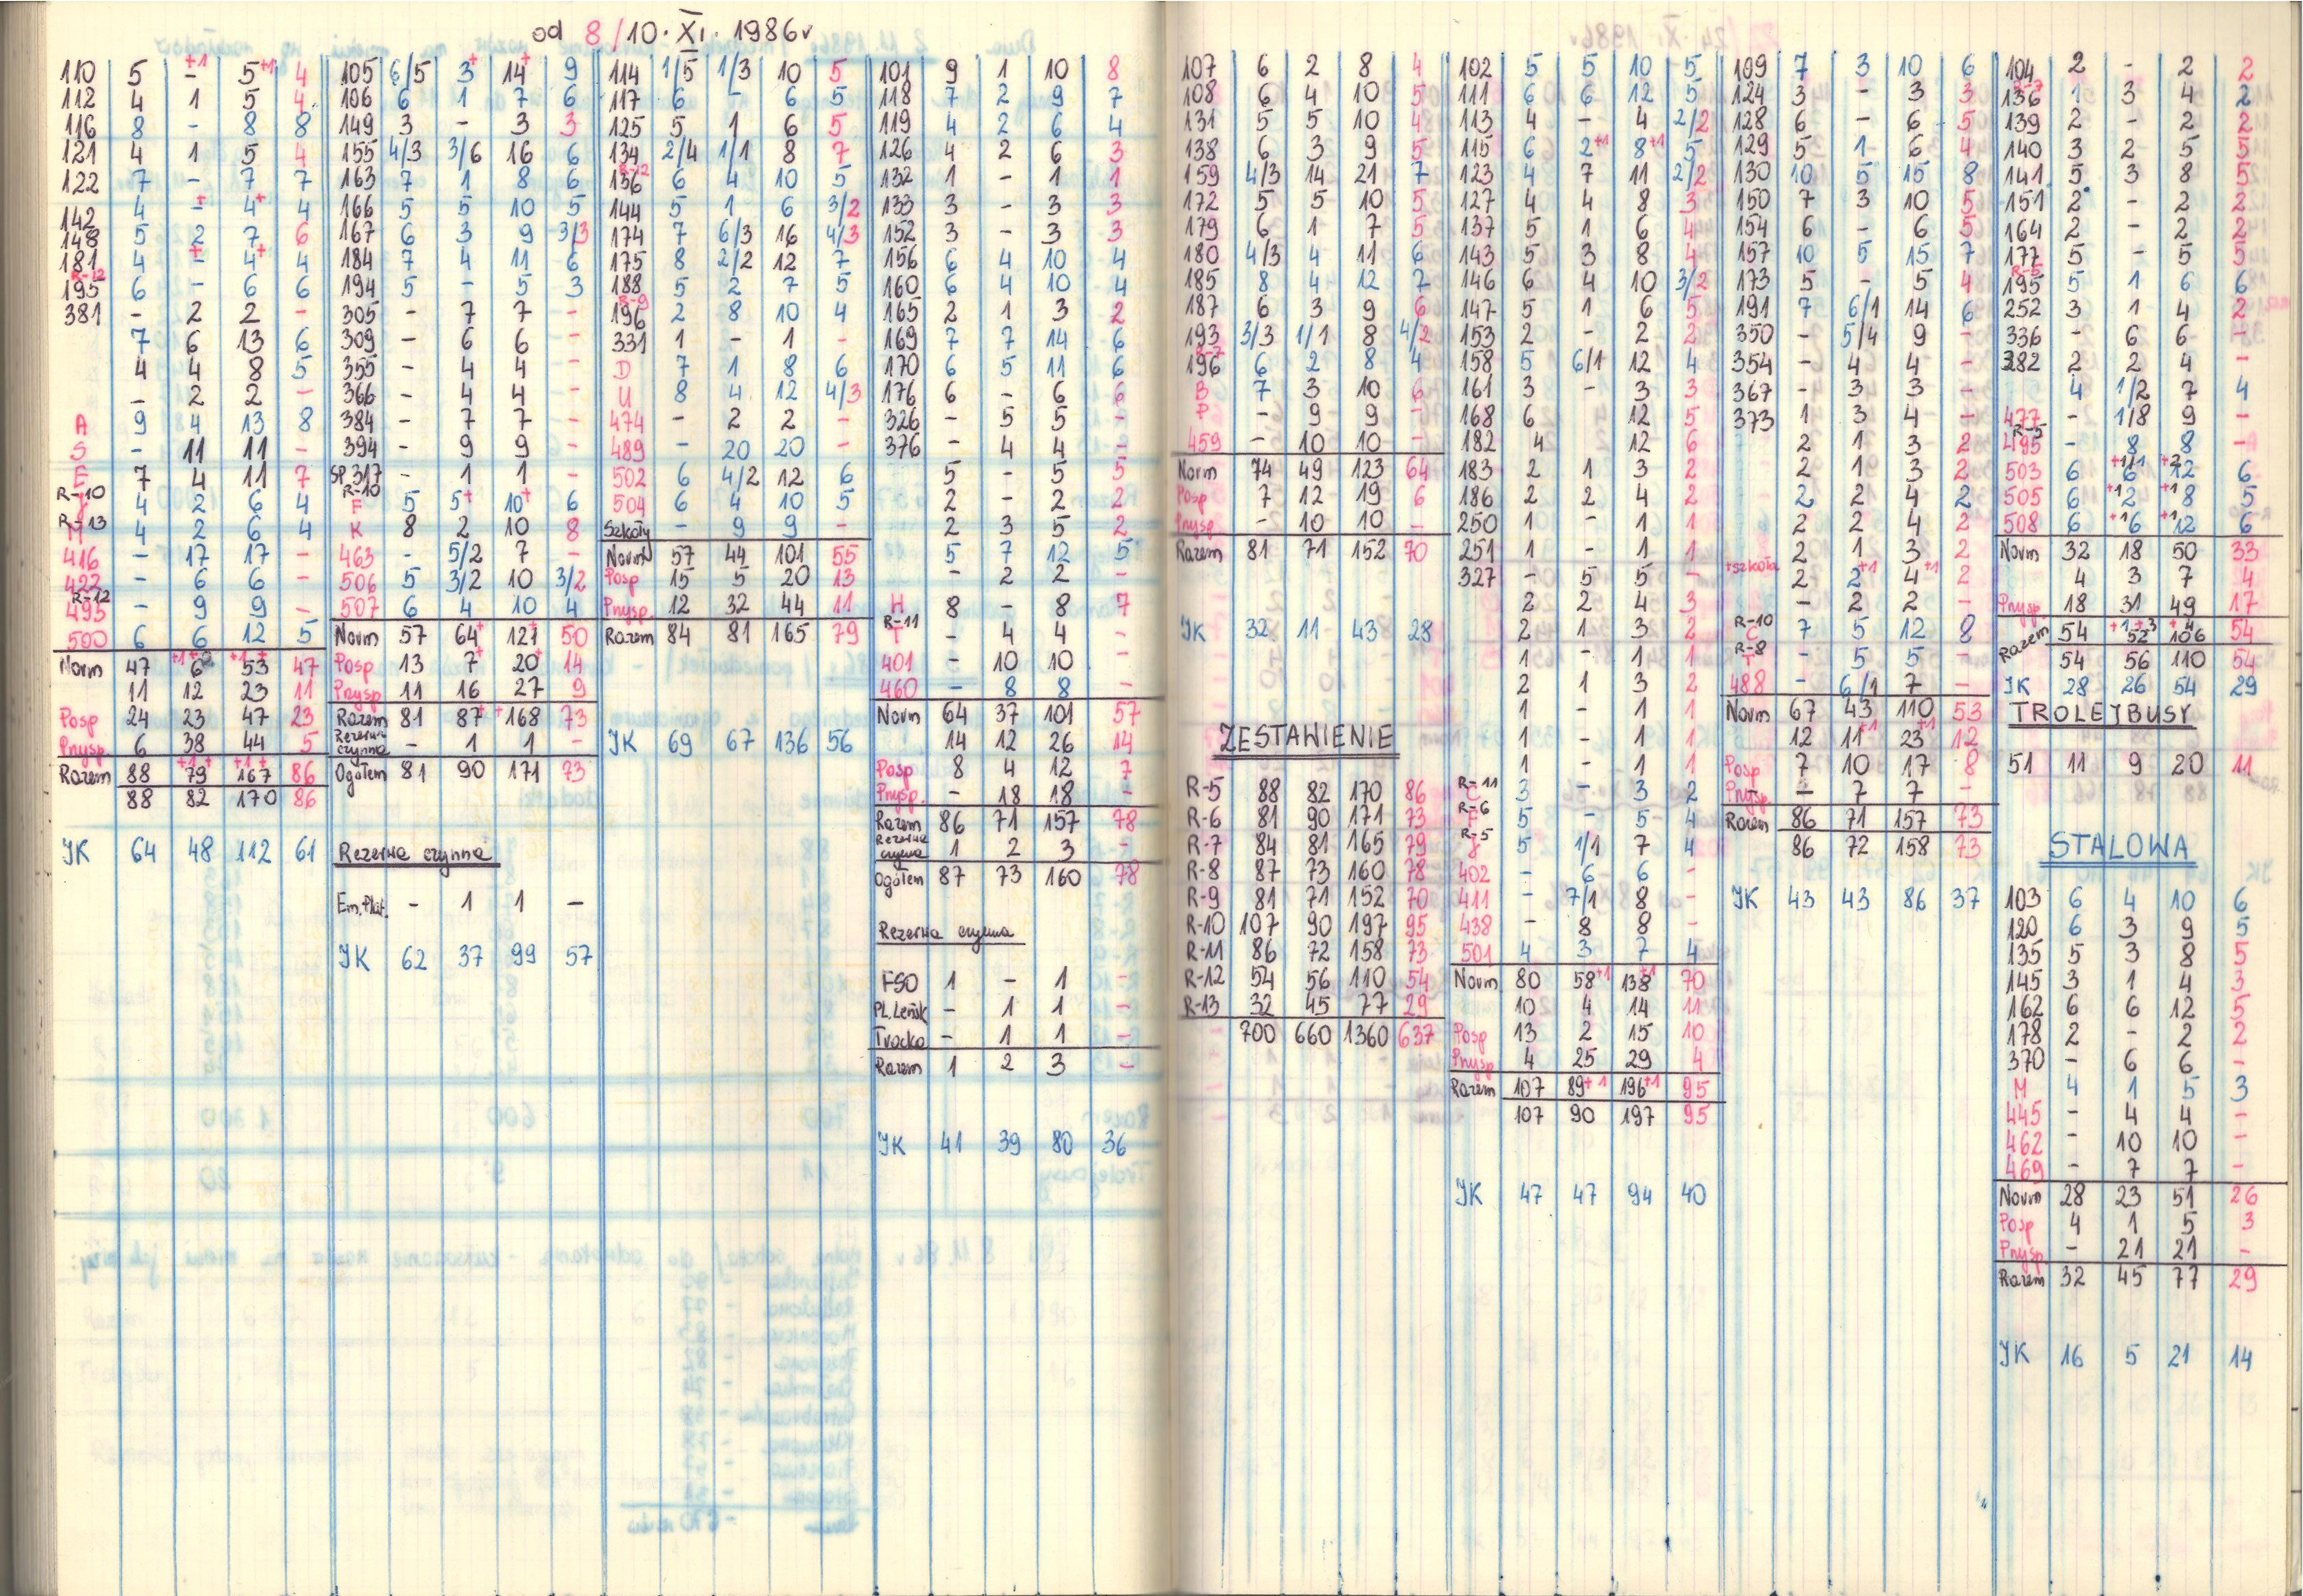 od 8/10.XI.1986r
110 5 - +1 5 +1 4
112 4 1 5 4
116 8 - 8 8
121 4 1 5 4
122 7 - 7 7
142 4 - + 4 + 4
148 5 2 7 6
181 4 - + 4 + 4
R-12
195 6 - 6 6
381 - 2 2 -
7 6 13 6
4 4 8 5
- 2 2 -
A 9 4 13 8
S - 11 11 -
E 7 4 11 7
R-10
J 4 2 6 4
R-13
M 4 2 6 4
416 - 17 17 -
422 - 6 6 -
R-12
493 - 9 9 -
500 6 6 12 5
Norm 47 53 47
11 12 23 11
Posp 24 23 47 23
Przysp 6 38 44 5
Razem 88 79 +1+ 167 +1+ 86
88 82 170 86
JK 64 48 112 61
105 6/5 3+ 14+ 9
106 6 1 7 6
149 3 - 3 3
155 4/3 3/6 16 6
163 7 1 8 6
166 5 5 10 5
167 6 3 9 3/3
184 7 4 11 6
194 5 - 5 3
305 - 7 7 -
309 - 6 6 -
355 - 4 4 -
366 - 4 4 -
384 - 7 7 -
394 - 9 9 -
SP.317 - 1 1 -
R-10
F 5 5+ 10+ 6
K 8 2 10 8
463 - 5/2 7 -
506 5 3/2 10 3/2
507 6 4 10 4
Norm 57 64+ 121+ 50
Posp 13 7+ 20+ 14
Przysp 11 16 27 9
Razem 81 87+ +168 73
Rezerwa czynna - 1 1 -
Ogółem 81 90 171 73
Rezerwa czynna
Em.Plat. - 1 1 -
JK 62 37 99 57
114 1/5 1/3 10 5
117 6 - 6 5
125 5 1 6 5
134 2/4 1/1 8 7
R-12
136 6 4 10 5
144 5 1 6 3/2
174 7 6/3 16 4/3
175 8 2/2 12 7
188 5 2 7 5
R-9
196 2 8 10 4
331 1 - 1 -
D 7 1 8 6
U 8 4 12 4/3
474 - 2 2 -
489 - 20 20 -
502 6 4/2 12 6
504 6 4 10 5
Szkoły - 9 9 -
Norm 57 44 101 55
Posp 15 5 20 13
Przysp. 12 32 44 11
Razem 84 81 165 79
JK 69 67 136 56
101 9 1 10 8
118 7 2 9 7
119 4 2 6 4
126 4 2 6 3
132 1 - 1 1
133 3 - 3 3
152 3 - 3 3
156 6 4 10 4
160 6 4 10 4
165 2 1 3 2
169 7 7 14 6
170 6 5 11 6
176 6 - 6 6
326 - 5 5 -
376 - 4 4 -
5 - 5 5
2 - 2 2
2 3 5 2
5 7 12 5
- 2 2 -
H 8 - 8 7
R-11
T - 4 4 -
401 - 10 10 -
460 - 8 8 -
Norm 64 37 101 57
14 12 26 14
Posp 8 4 12 7
Przysp. - 18 18 -
Razem 86 71 157 78
Rezerwa czynna 1 2 3 -
Ogółem 87 73 160 78
Rezerwa czynna
FSO 1 - 1 -
Pl.Leńsk - 1 1 -
Trocka - 1 1 -
Razem 1 2 3 -
JK 41 39 80 36
107 6 2 8 4
108 6 4 10 5
131 5 5 10 4
138 6 3 9 5
159 4/3 14 21 7
172 5 5 10 5
179 6 1 7 5
180 4/3 4 11 6
185 8 4 12 7
187 6 3 9 6
193 3/3 1/1 8 4/2
R-7
196 6 2 8 4
B 7 3 10 6
P - 9 9 -
459 - 10 10 -
Norm 74 49 123 64
Posp 7 12 19 6
Przysp - 10 10 -
Razem 81 71 152 70
JK 32 11 43 28
ZESTAWIENIE
R-5 88 82 170 86
R-6 81 90 171 73
R-7 84 81 165 79
R-8 87 73 160 78
R-9 81 71 152 70
R-10 107 90 197 95
R-11 86 72 158 73
R-12 54 56 110 54
R-13 32 45 77 29
700 660 1360 637
102 5 5 10 5
111 6 6 12 5
113 4 - 4 2/2
115 6 2+1 8+1 5
123 4 7 11 2/2
127 4 4 8 3
137 5 1 6 4
143 5 3 8 4
146 6 4 10 3/2
147 5 1 6 5
153 2 - 2 2
158 5 6/1 12 4
161 3 - 3 3
168 6 12 5
182 4 12 6
183 2 1 3 2
186 2 2 4 2
250 1 - 1 1
251 1 - 1 1
327 - 5 5 -
2 2 4 3
2 1 3 2
1 - 1 1
2 1 3 2
1 - 1 1
1 - 1 1
1 - 1 1
R-11
C 3 - 3 2
R-6
F 5 - 5 4
R-5
J 5 1/1 7 4
402 - 6 6 -
411 - 7/1 8 -
438 - 8 8 -
501 4 3 7 4
Norm 80 58+1 138+1 70
10 4 14 11
Posp 13 2 15 10
Przysp 4 25 29 4
Razem 107 89+1 196+1 95
107 90 197 95
JK 47 47 94 40
109 7 3 10 6
124 3 - 3 3
128 6 - 6 5
129 5 1 6 4
130 10 5 15 8
150 7 3 10 5
154 6 - 6 5
157 10 5 15 7
173 5 - 5 4
191 7 6/1 14 6
350 - 5/4 9 -
354 - 4 4 -
367 - 3 3 -
373 1 3 4 -
2 1 3 2
2 1 3 2
2 2 4 2
2 2 4 2
2 1 3 2
+szkoła 2 2+1 4+1 2
- 2 2 -
R-10
C 7 5 12 8
R-8
T - 5 5 -
488 - 6/1 7 -
Norm 67 43 110 53
12 11+1 23+1 12
Posp 7 10 17 8
Przysp. - 7 7 -
Razem 86 71 157 73
86 72 158 73
JK 43 43 86 37
104 2 - 2 2
R-7
136 1 3 4 2
139 2 - 2 2
140 3 2 5 5
141 5 3 8 5
151 2 - 2 2
164 2 - 2 2
177 5 - 5 5
R-5
195 5 1 6 6
252 3 1 4 2
336 - 6 6 -
382 2 2 4 -
4 1/2 7 4
477 - 1/8 9 -
R-5
495 - 8 8 -
503 6 6 12 6
505 6 +1 2 +1 8 5
508 6 +1 6 +1 12 6
Norm 32 18 50 33
4 3 7 4
Przysp 18 31 49 17
Razem 54 52 106 54
54 56 110 54
JK 28 26 54 29
TROLEJBUSY
51 11 9 20 11
STALOWA
103 6 4 10 6
120 6 3 9 5
135 5 3 8 5
145 3 1 4 3
162 6 6 12 5
178 2 - 2 2
370 - 6 6 -
M 4 1 5 3
445 - 4 4 -
462 - 10 10 -
469 - 7 7 -
Norm 28 23 51 26
Posp 4 1 5 3
Przysp. - 21 21 -
Razem 32 45 77 29
JK 16 5 21 14